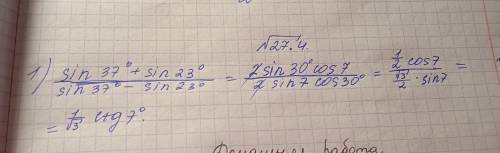 √27.4.
1) (sin 37° + sin 23°)/(sin 37° − sin 23°) = (2 sin 30° cos 7)/(2 sin 7 cos 30°) = (1/2 cos 7)/(√3/2 · sin 7) =
= 1/√3 ctg 7°.
Домашняя работа